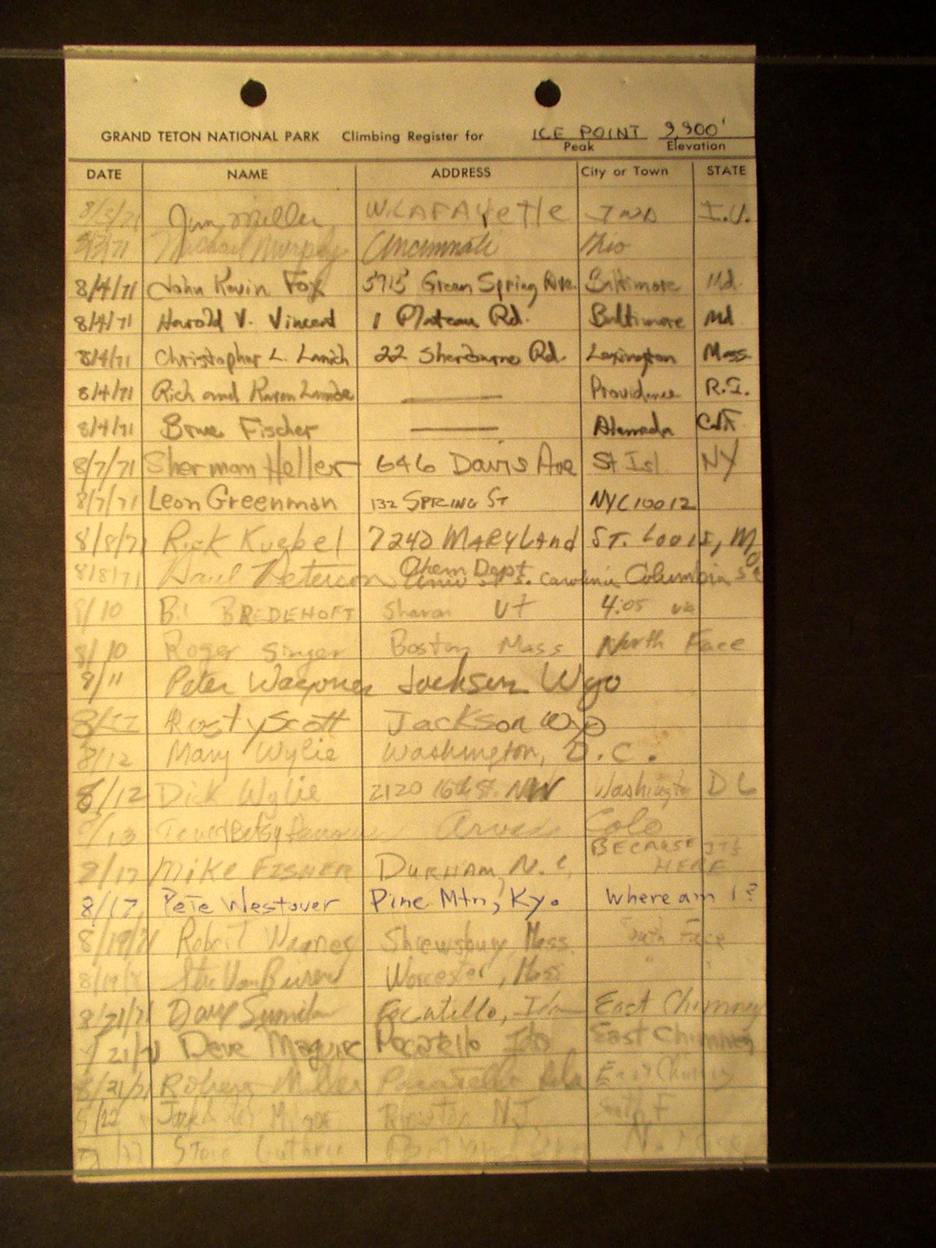 GRAND TETON NATIONAL PARK Climbing Register for ICE POINT 9,900'
Peak Elevation
DATE NAME ADDRESS City or Town STATE
8/3/71 Jim Miller W. LAFAYETTE IND I.U.
8/3/71 Michael Murphy Cincinnati Ohio
8/4/71 John Kevin Fox 5715 Green Spring Ave. Baltimore Md.
8/4/71 Harold V. Vincent 1 Plateau Rd. Baltimore Md
8/4/71 Christopher L. 22 Sherburne Rd. Lexington Mass
8/4/71 Rich and Karen Providence R.I.
8/4/71 Bruce Fischer Alameda
8/7/71 Sherman Heller 646 Davis Ave St Isl NY
8/7/71 Leon Greenman 132 SPRING ST NYC 10012
8/8/71 Rick Kuebel 7240 MARYLAND ST. LOUIS, Mo
8/8/71 Paul Peterson Chem Dept Univ of S. Carolina Columbia SC
8/10 BREDEHOFT Sharon UT 4:05 via
8/10 Roger Singer Boston Mass North Face
8/11 Peter Jackson Wyo
8/11 Rusty Scott Jackson Wyo
8/12 Mary Wylie Washington, D.C.
8/12 Dick Wylie 2120 16th St. NW Washington DC
8/13 Betsy Colo
8/17 MIKE FISHER DURHAM, N.C. BECAUSE IT'S HERE
8/17, Pete Westover Pine Mtn, Ky. Where am I?
8/19/71 Robert Shrewsbury, Mass. South Face
Van Buren Worcester, Mass " "
8/21/71 Dave Pocatello, Ida East Chimney
8/21/71 Dave Maguire Pocatello Ida East Chimney
8/21/71 Pocatello Ida East Chimney
8/22 N.J. South F
Steve Guthrie